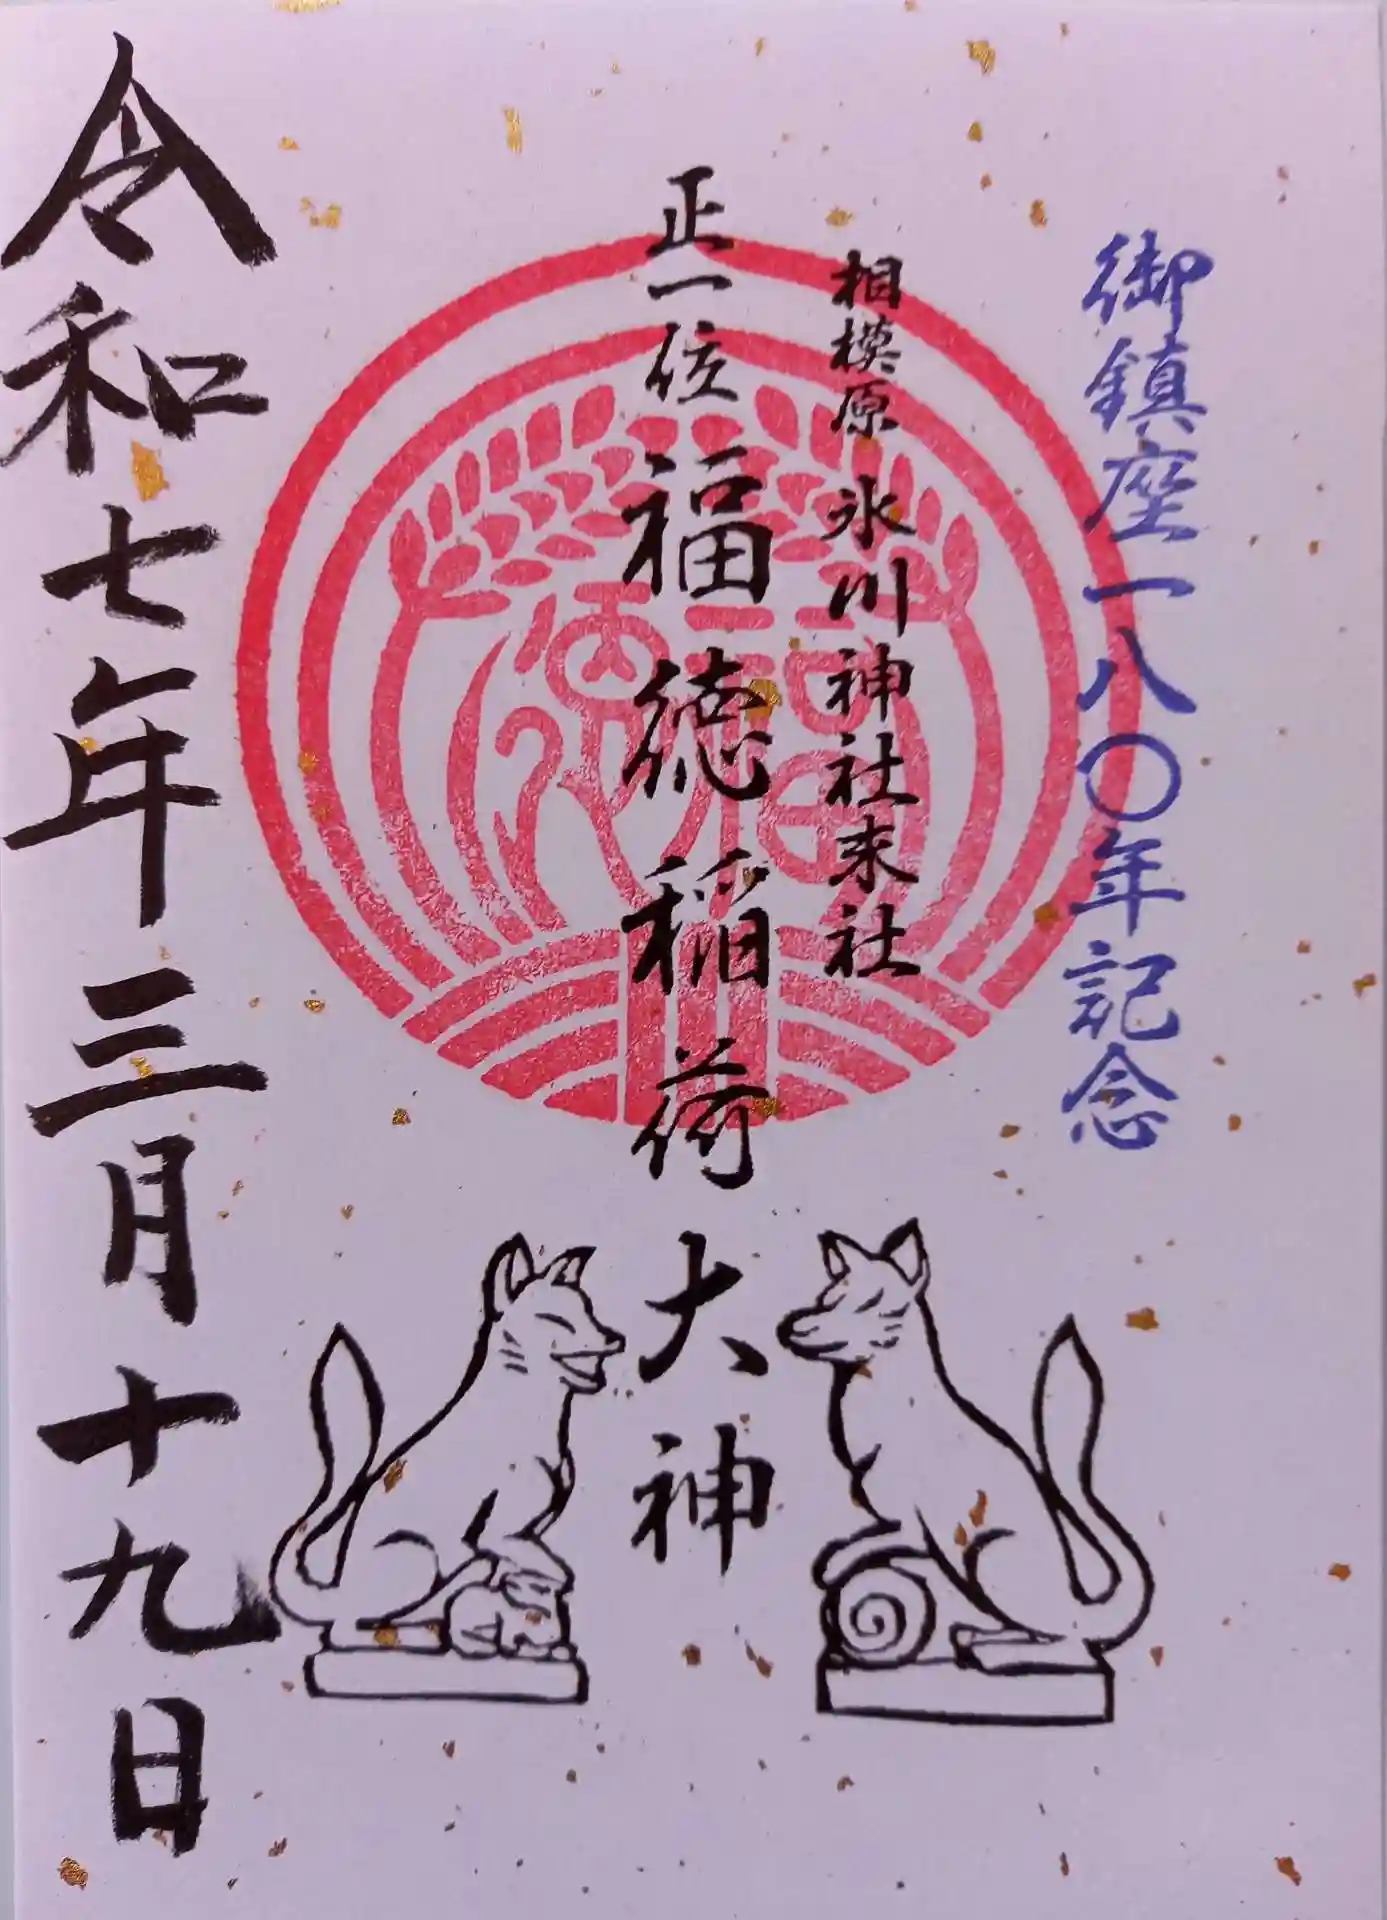 御鎮座一八〇年記念
相模原 氷川神社末社
正一位 福徳稲荷大神
令和七年三月十九日